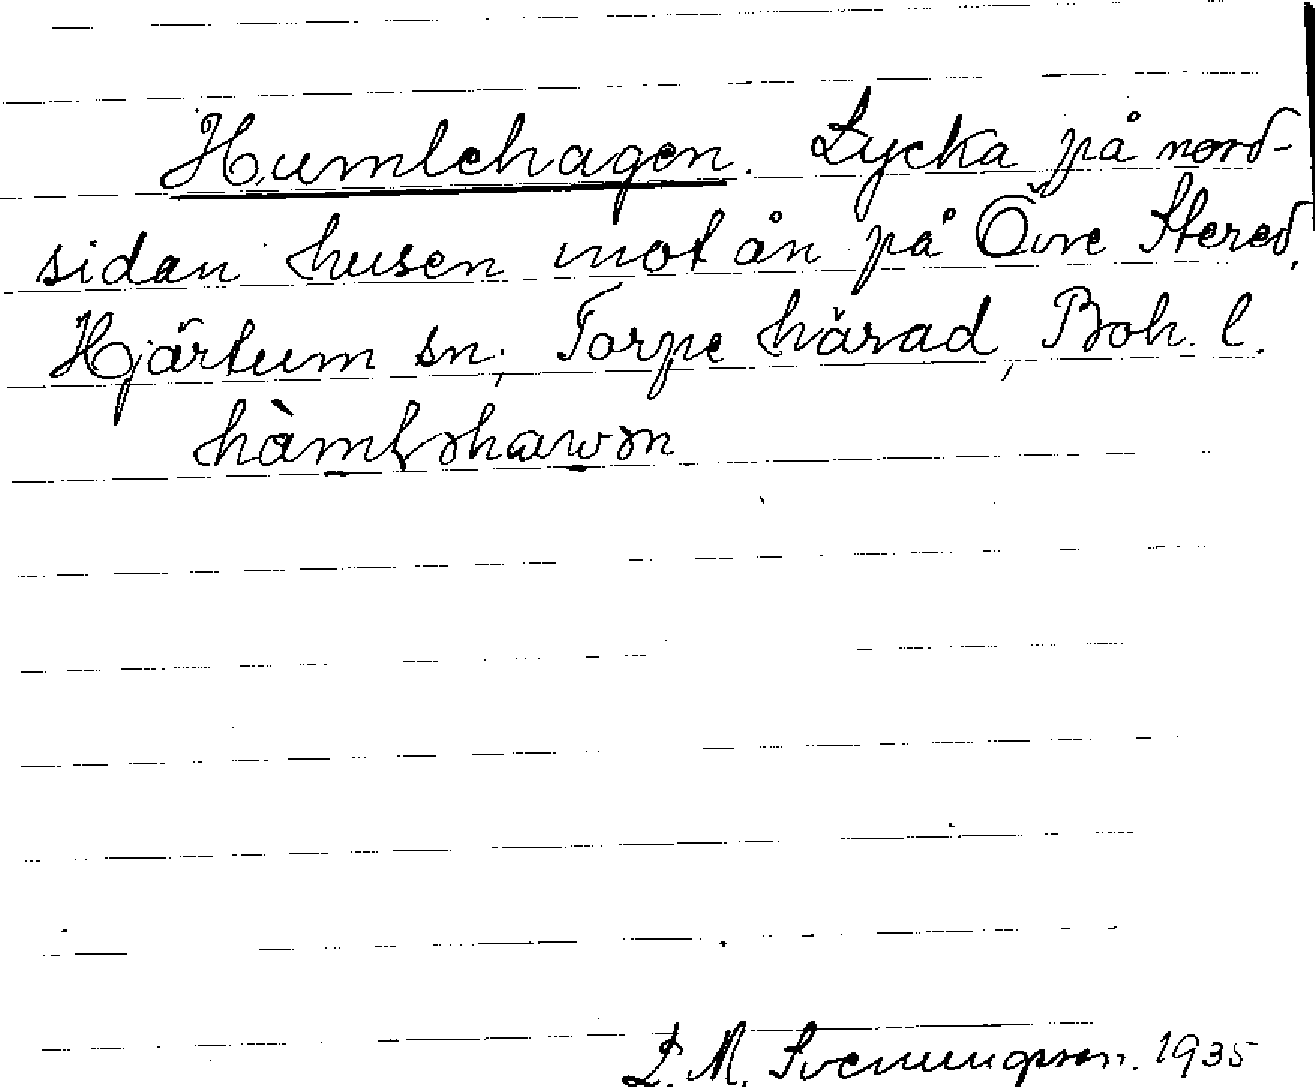 Humlehagen. Lycka på nord-
sidan husen mot ån på Övre Stered,
Hjärtum sn, Torpe härad, Boh. l.
L. M. Svenungsson. 1935